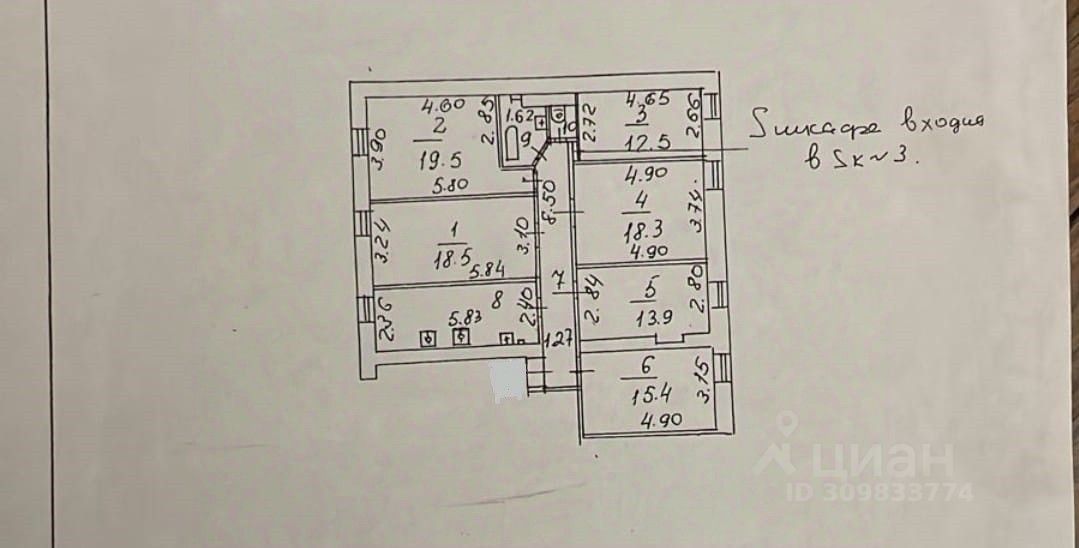 4.60
2
19.5
5.80
3.90
2.85
1.62
9
10
4.65
3
12.5
2.72
2.66
Sшкафа входит
в Sк~3.
4.90
4
18.3
4.90
3.74.
8.50
1
18.5
5.84
3.24
3.10
7
5
13.9
2.84
2.80
8
5.83
2.36
2.40
1.27
6
15.4
4.90
3.15
циан
ID 309833774